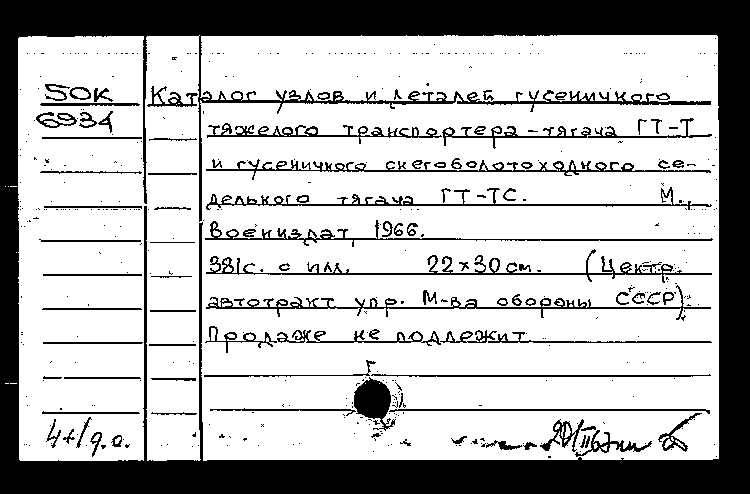 50к Каталог узлов и деталей гусеничного
6934 тяжелого транспортера-тягача ГТ-Т
и гусеничного снегоболотоходного се-
дельного тягача ГТ-ТС. М.,
Воениздат, 1966.
381с. с илл. 22×30см. (Центр.
автотракт упр. М-ва обороны СССР)
Продаже не подлежит